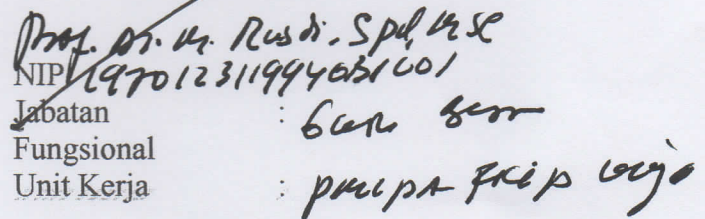 Prof. Dr. M. Rusdi, S.pd, M.Sc
NIP 197012311994031001
Jabatan : Guru Besar
Fungsional
Unit Kerja : PMIPA FKIP Unja